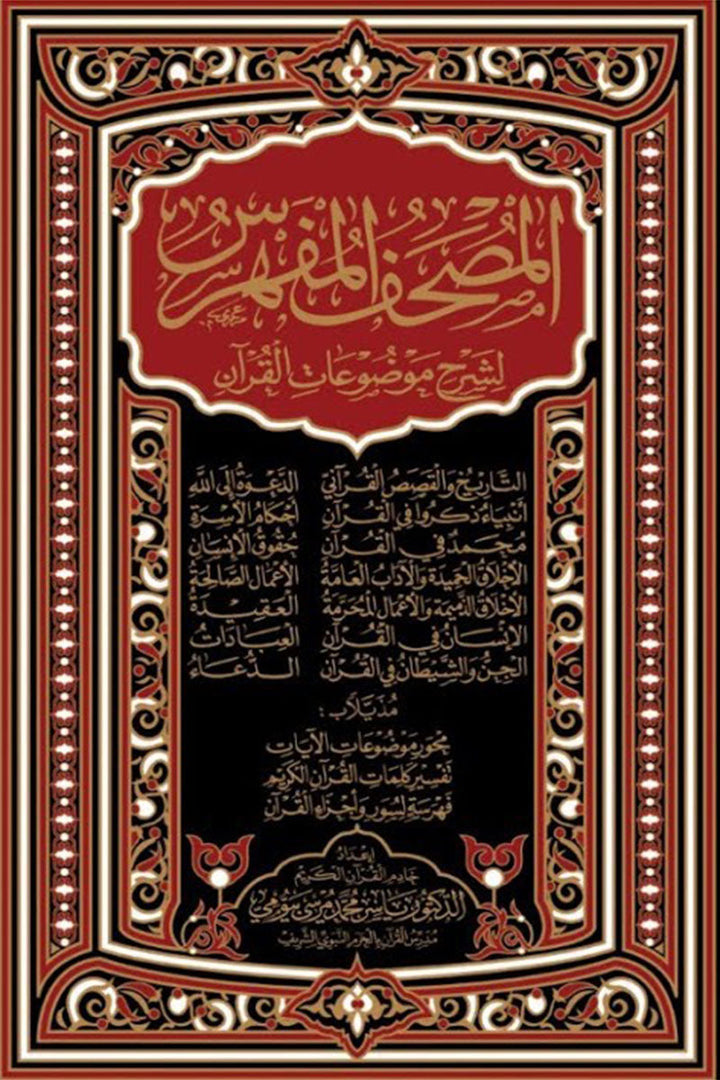 المُصْحَفُ المُفَهْرَسُ
لِشَرْحِ مَوْضُوعَاتِ القُرْآنِ
التَّارِيخُ وَالقَصَصُ القُرْآنِيُّ
أَنْبِيَاءُ ذُكِرُوا فِي القُرْآنِ
مُحَمَّدٌ فِي القُرْآنِ
الأَخْلَاقُ الحَمِيدَةُ وَالآدَابُ العَامَّةُ
الأَخْلَاقُ الذَّمِيمَةُ وَالأَعْمَالُ المُحَرَّمَةُ
الإِنْسَانُ فِي القُرْآنِ
الجِنُّ وَالشَّيْطَانُ فِي القُرْآنِ
الدَّعْوَةُ إِلَى اللَّهِ
أَحْكَامُ الأُسْرَةِ
حُقُوقُ الإِنْسَانِ
الأَعْمَالُ الصَّالِحَةُ
العَقِيدَةُ
العِبَادَاتُ
الدُّعَاءُ
مُذَيَّلًا بِـ:
مِحْوَرِ مَوْضُوعَاتِ الآيَاتِ
تَفْسِيرِ كَلِمَاتِ القُرْآنِ الكَرِيمِ
فَهْرَسَةٍ لِسُوَرِ وَأَجْزَاءِ القُرْآنِ
إِعْدَادُ
خَادِمِ القُرْآنِ الكَرِيمِ
الدُّكْتُورِ يَاسِر مُحَمَّد مُرْسِي بَيُّومِي
مُدَرِّسِ القُرْآنِ بِالحَرَمِ النَّبَوِيِّ الشَّرِيفِ